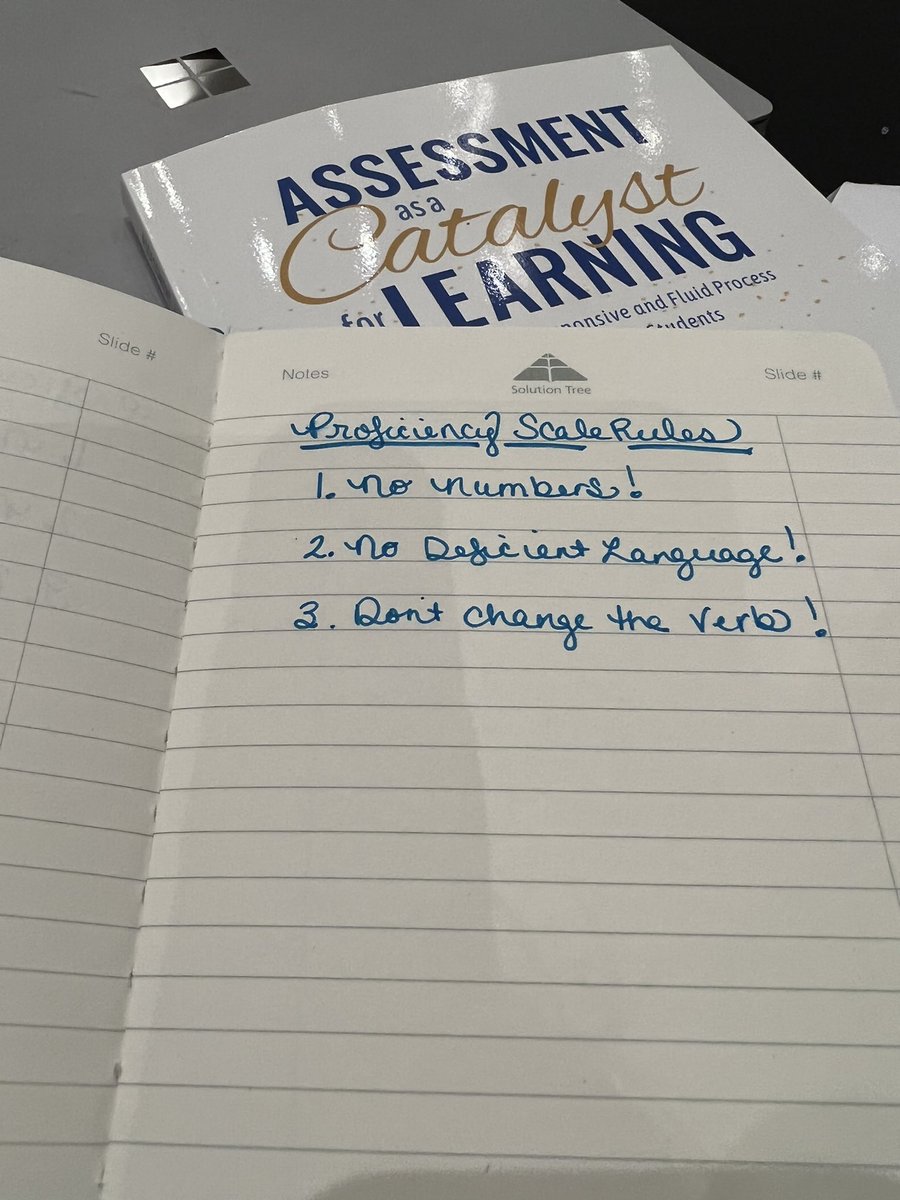 ASSESSMENT
as a
Catalyst
for LEARNING
onsive and Fluid Process
Students
Slide #
Notes
Solution Tree
Slide #
Proficiency Scale Rules
1. No Numbers!
2. No Deficient Language!
3. Don't change the verb!